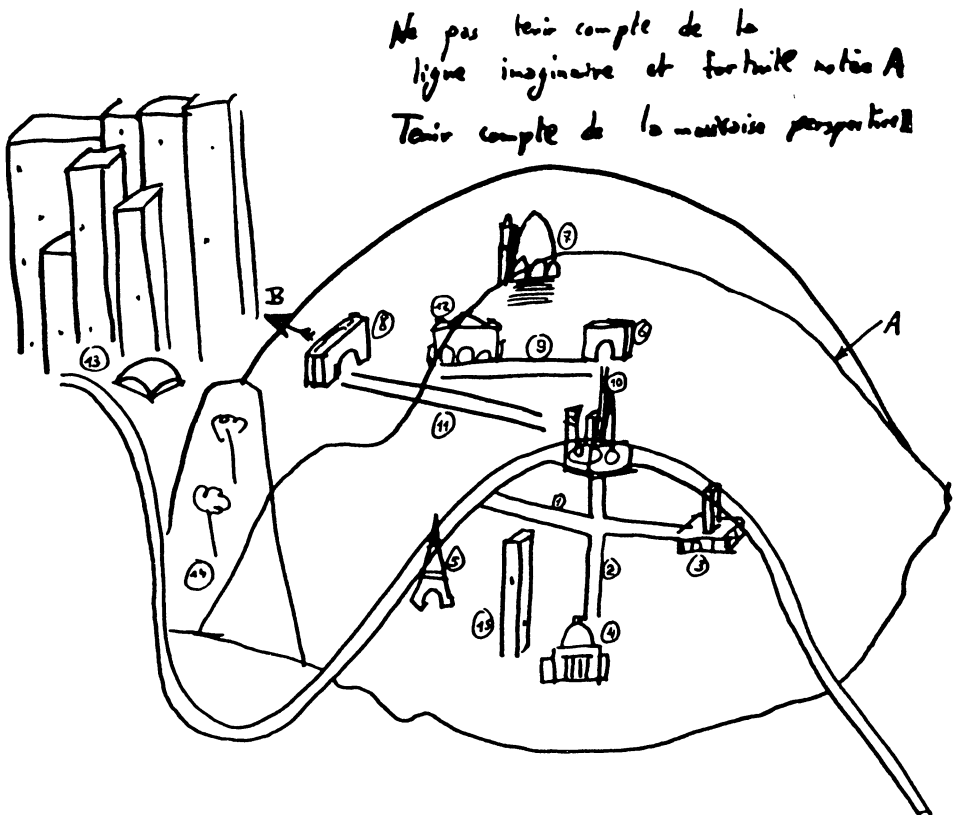 Ne pas tenir compte de la
ligne imaginaire et fortuite notée A
Tenir compte de la mauvaise perspective
7
B
8
12
6
A
9
13
10
11
1
5
3
2
14
15
4